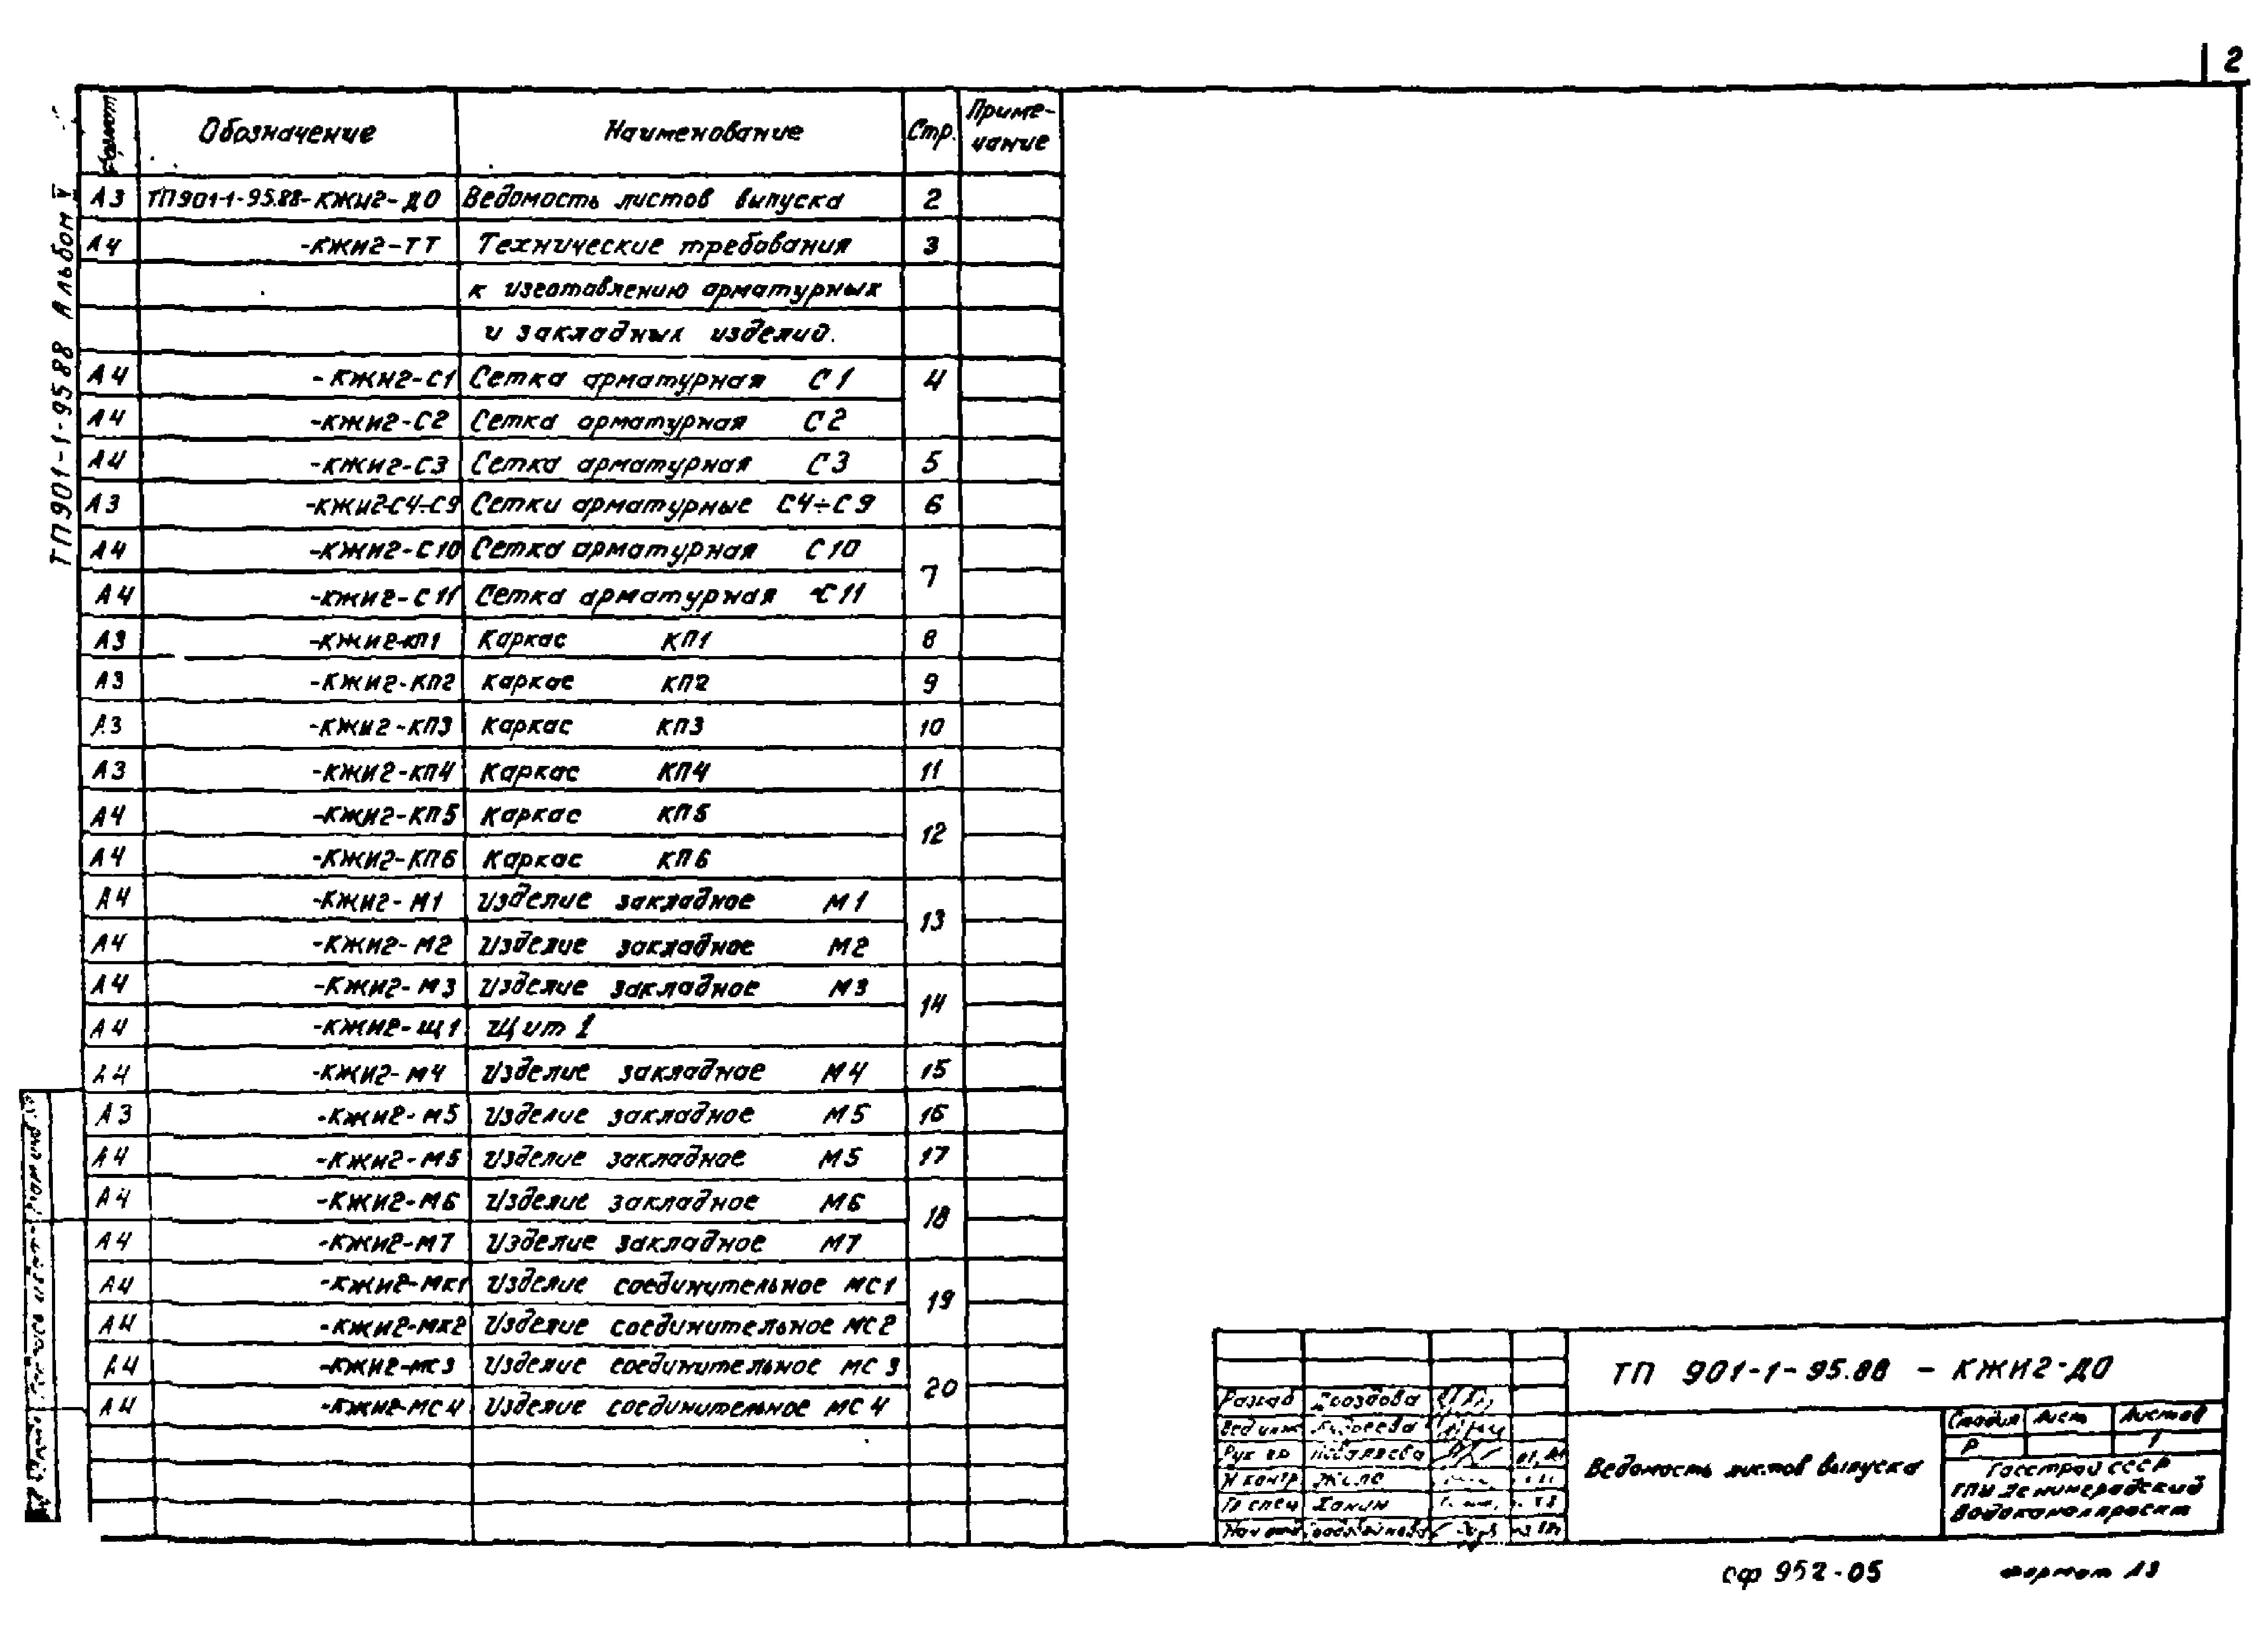 2
ТП901-1-95.88 Альбом V
Формат Обозначение Наименование Стр. Приме-
чание
А3 ТП901-1-95.88-КЖИ2-ДО Ведомость листов выпуска 2
А4 -КЖИ2-ТТ Технические требования 3
к изготовлению арматурных
и закладных изделий.
А4 -КЖИ2-С1 Сетка арматурная С1 4
А4 -КЖИ2-С2 Сетка арматурная С2
А4 -КЖИ2-С3 Сетка арматурная С3 5
А3 -КЖИ2-С4÷С9 Сетки арматурные С4÷С9 6
А4 -КЖИ2-С10 Сетка арматурная С10 7
А4 -КЖИ2-С11 Сетка арматурная С11
А3 -КЖИ2-КП1 Каркас КП1 8
А3 -КЖИ2-КП2 Каркас КП2 9
А3 -КЖИ2-КП3 Каркас КП3 10
А3 -КЖИ2-КП4 Каркас КП4 11
А4 -КЖИ2-КП5 Каркас КП5 12
А4 -КЖИ2-КП6 Каркас КП6
А4 -КЖИ2-М1 Изделие закладное М1 13
А4 -КЖИ2-М2 Изделие закладное М2
А4 -КЖИ2-М3 Изделие закладное М3 14
А4 -КЖИ2-Щ1 Щит 1
А4 -КЖИ2-М4 Изделие закладное М4 15
А3 -КЖИ2-М5 Изделие закладное М5 16
А4 -КЖИ2-М5 Изделие закладное М5 17
А4 -КЖИ2-М6 Изделие закладное М6 18
А4 -КЖИ2-М7 Изделие закладное М7
А4 -КЖИ2-МК1 Изделие соединительное МС1 19
А4 -КЖИ2-МК2 Изделие соединительное МС2
А4 -КЖИ2-МС3 Изделие соединительное МС3 20
А4 -КЖИ2-МС4 Изделие соединительное МС4
ТП 901-1-95.88 - КЖИ2-ДО
Разраб Дроздова
Вед инж
Рук гр
Н контр
Гл спец Ханин
Нач отд
Ведомость листов выпуска
Стадия Лист Листов
Р 1
Госстрой СССР
ГПИ Ленинградский
Водоканалпроект
СФ 952-05 Формат А3